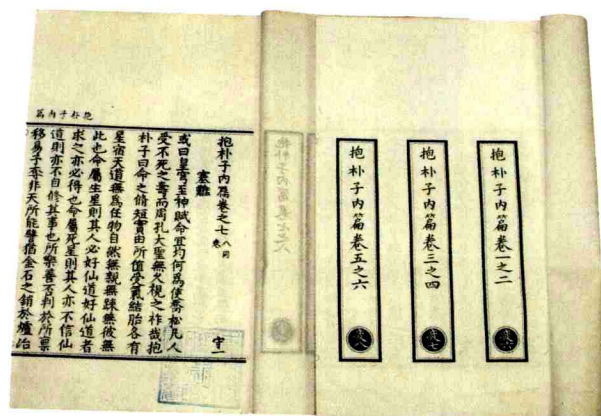 抱朴子內篇卷一之二
抱朴子內篇卷三之四
抱朴子內篇卷五之六
抱朴子內篇卷之七 八同卷 守一
塞難
或曰皇穹至神賦命宜均何爲使喬松凡人
受不死之壽而周孔大聖無久視之祚哉抱
朴子曰命之脩短實由所值受氣結胎各有
星宿天道無爲任物自然無親無疎無彼無
此也命屬生星則其人必好仙道好仙道者
求之亦必得也命屬死星則其人亦不信仙
道則亦不自修其事也所樂善否判於所稟
移易予奪非天所能譬猶金石之銷於爐冶
抱朴子內篇